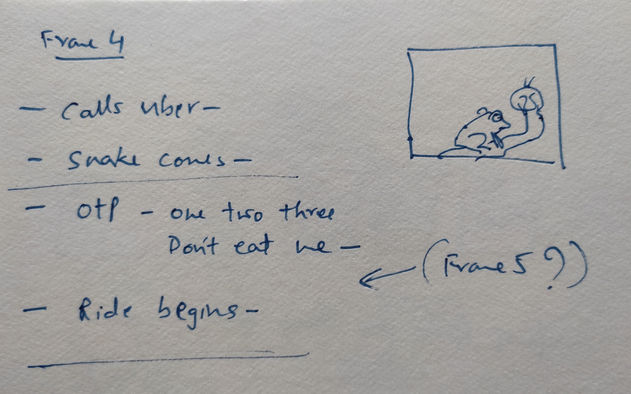 Frame 4
- Calls uber -
- Snake comes -
- OTP - one two three
Don't eat me -
(Frame 5?)
- Ride begins -